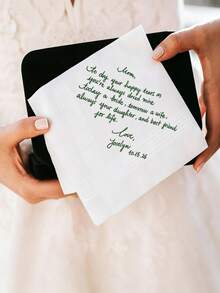 Mom,
to dry your happy tears as
you've always dried mine
today a bride, tomorrow a wife,
always your daughter, and best friend
for life.
love,
Jocelyn
10.15.26